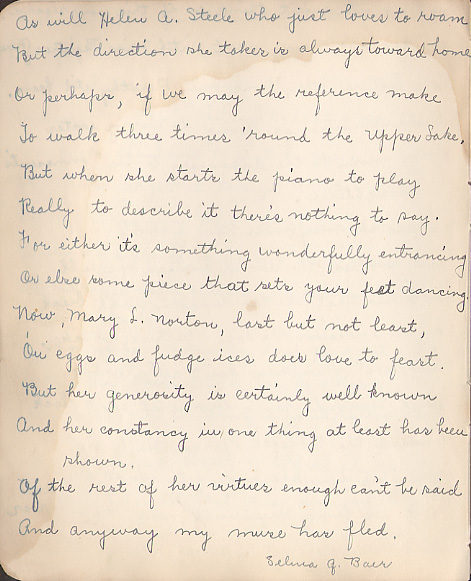 As will Helen A. Steele who just loves to roam
But the direction she takes is always toward home
Or perhaps, if we may the reference make
To walk three times 'round the Upper Lake,
But when she starts the piano to play
Really to describe it there's nothing to say.
For either it's something wonderfully entrancing
Or else some piece that sets your feet dancing.
Now, Mary L. Norton, last but not least,
On eggs and fudge ices does love to feast.
But her generosity is certainly well known
And her constancy in one thing at least has been
shown.
Of the rest of her virtues enough can't be said
And anyway my muse has fled.
Selma G. Baer